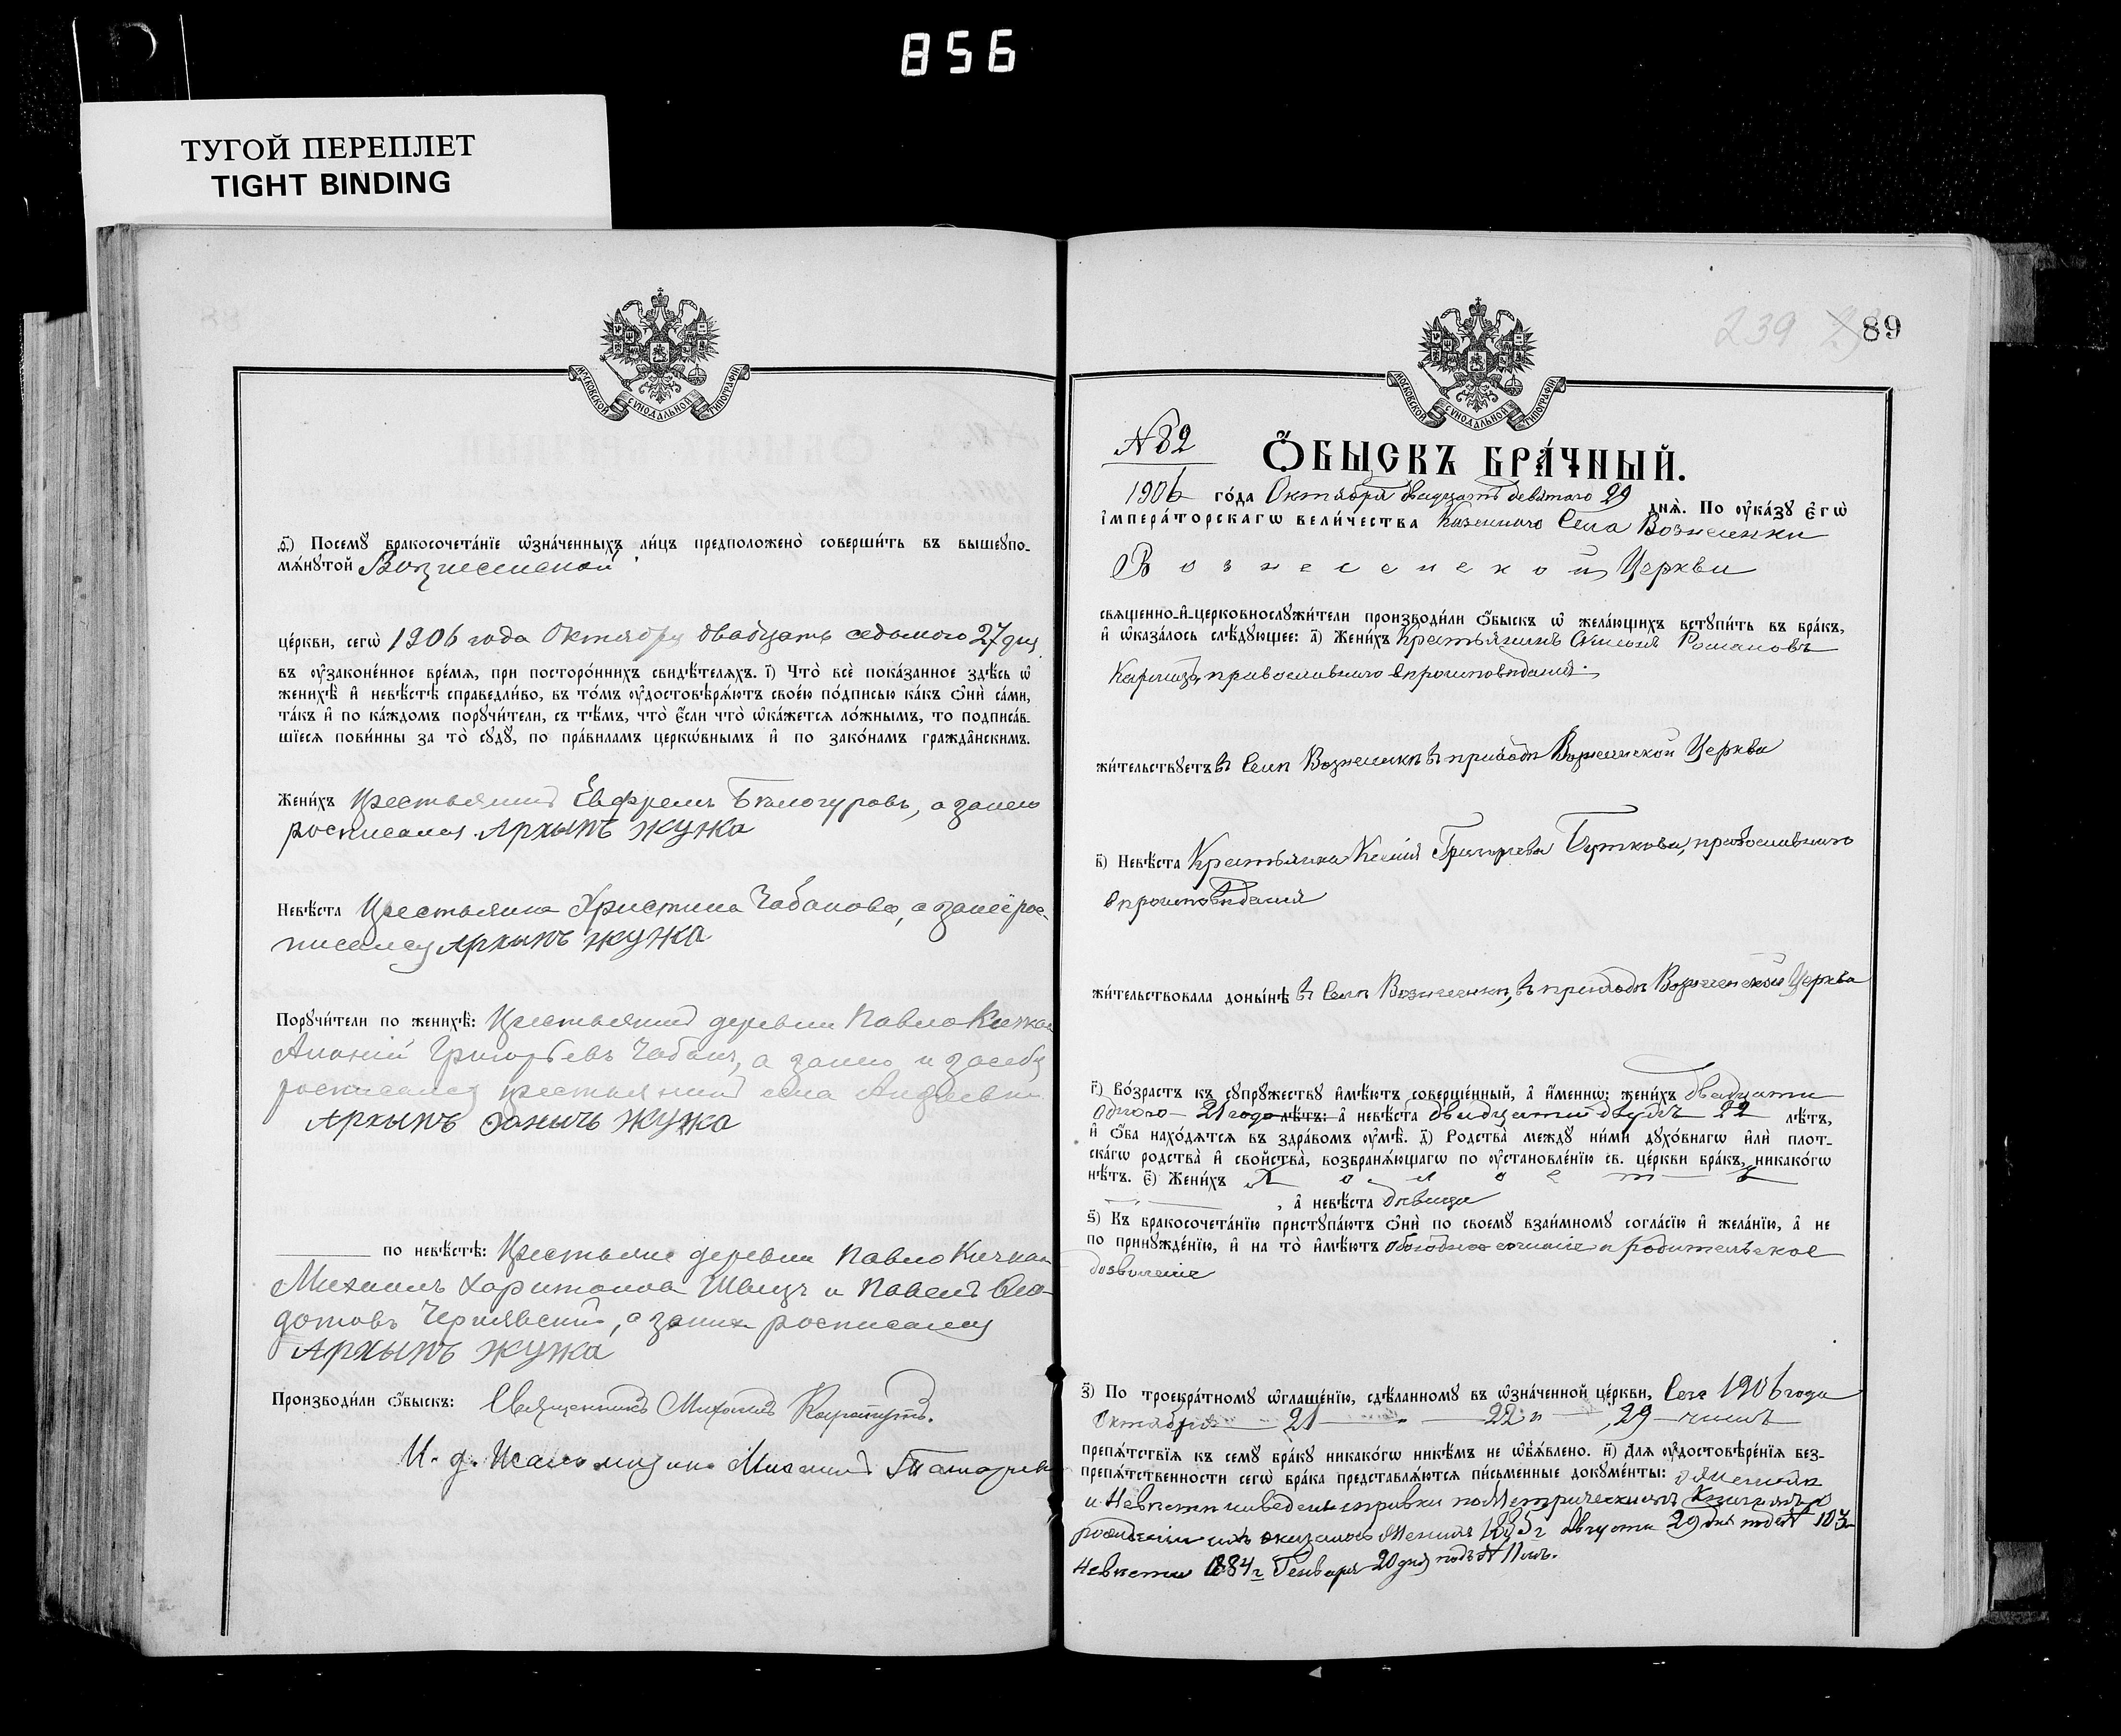 856
ТУГОЙ ПЕРЕПЛЕТ
TIGHT BINDING
МОСКОВСКОЙ СѴНОДАЛЬНОЙ ТИПОГРАФІИ
ѳ҃) Посемꙋ̀ бракосочета́нїе ѡ҆зна́ченныхъ ли́цъ предположено̀ соверши́ть въ вышеꙋпо-
мѧ́нꙋтой Вознесенской
це́ркви, сегѡ̀ 1906 года Октября двадцать седьмого 27 дня
въ ᲂу҆зако́ненное вре́мѧ, при посторо́ннихъ свидѣ́телѧхъ. і҃) Что̀ всѐ пока́занное здѣ́сь ѡ҆
женихѣ̀ и҆ невѣ́стѣ справедли́во, въ то́мъ ᲂу҆достовѣрѧ́ютъ свое́ю по́дписью ка́къ ѻ҆нѝ са́ми,
та́къ и҆ по ка́ждомъ порꙋчи́тели, съ тѣ́мъ, что̀ є҆́сли что̀ ѡ҆ка́жетсѧ ло́жнымъ, то подписа́в-
шїесѧ пови́нны за то̀ сꙋдꙋ̀, по пра́виламъ церкѡ́внымъ и҆ по зако́намъ гражда̑нскимъ.
Жени́хъ Крестьянинъ Евфремъ Бѣлогуровъ, а занего
росписался Архыпъ Жужа
Невѣ́ста Крестьянка Христина Чабанова, а занеё рос-
писался Архыпъ Жужа
Порꙋчи́тели по женихѣ̀: Крестьянинъ деревни Павло Кичкас
Ананій Григорьевъ Чабанъ, а занего и засебя
росписался крестьянинъ села Андреевки
Архыпъ Жужа
по невѣ́стѣ: Крестьяне деревни Павло Кичкас
Михаилъ Харитоновъ Швецъ и Павелъ Ѳео-
дотовъ Чернявский, а заних росписался
Архыпъ Жужа
Производи́ли ѻ҆́быскъ: Священникъ Михаилъ
И. д. Псаломщика Михаилъ
239
89
МОСКОВСКОЙ СѴНОДАЛЬНОЙ ТИПОГРАФІИ
N 82
Ѻ҆́БЫСКЪ БРА́ЧНЫЙ.
1906 го́да Октября двадцать девятого 29 днѧ̀. По ᲂу҆ка́зꙋ Є҆гѡ̀
і҆мпера́торскагѡ вели́чества Казенного Села Вознесенки
Вознесенской Церкви
свѧще́нно-и҆-церковнослꙋжи́тели производи́ли ѻ҆́быскъ ѡ҆ жела́ющихъ встꙋпи́ть въ бра́къ,
и҆ ѡ҆каза́лось слѣ́дꙋющее: а҃) Жени́хъ Крестьянинъ Романовъ
православного вѣроисповѣданія
жи́тельствꙋетъ въ Селѣ Вознесенкѣ въ приходѣ Вознесенской Церкви
в҃) Невѣ́ста Крестьянка Ксенія Григорьева Буткова, православного
вѣроисповѣданія
жи́тельствовала доны́нѣ въ Селѣ Вознесенкѣ, въ приходѣ Вознесенской Церкви
г҃) Во́зрастъ къ сꙋпрꙋ́жествꙋ и҆мѣ́ютъ соверше́нный, а҆ и҆́менно: жени́хъ двадцати
одного 21 года лѣ́тъ: а҆ невѣ́ста двадцати двухъ 22 лѣ́тъ,
и҆ ѻ҆́ба нахо́дѧтсѧ въ здра́вомъ ᲂу҆мѣ̀. д҃) Родства̀ междꙋ̀ ни́ми дꙋхо́внагѡ и҆лѝ плот-
ска́гѡ родства̀ и҆ свойства̀, возбранѧ́ющагѡ по ᲂу҆становле́нїю св. це́ркви бра́къ, никако́гѡ
нѣ́тъ. є҃) Жени́хъ холостъ
, а҆ невѣ́ста дѣвица
ѕ҃) Къ бракосочета́нїю пристꙋпа́ютъ ѻ҆нѝ по своемꙋ̀ взаи́мномꙋ согла́сїю и҆ жела́нїю, а҆ не
по принꙋжде́нїю, и҆ на то̀ и҆мѣ́ютъ обоюдное согласіе и родительское
дозволеніе
з҃) По троекра́тномꙋ ѡ҆глаше́нїю, сдѣ́ланномꙋ въ ѡ҆зна́ченной це́ркви, Сего 1906 года
Октября 21 22 и 29 чиселъ
препѧ́тствїѧ къ семꙋ̀ бра́кꙋ никако́гѡ никѣ́мъ не ѡ҆б̾ѧ́влено. и҃) Длѧ ᲂу҆достовѣре́нїѧ без-
препѧ́тственности сегѡ̀ бра́ка представлѧ́ютсѧ пи́сьменные докꙋме́нты: о Женихѣ
и Невѣстѣ наведены справки по Метрическимъ Книгамъ о
рожденіи ихъ оказалось Жениха 1885 г Августа 29 дня подъ N 103
Невѣсты 1884 г Генваря 20 дня подъ N 11 мъ.